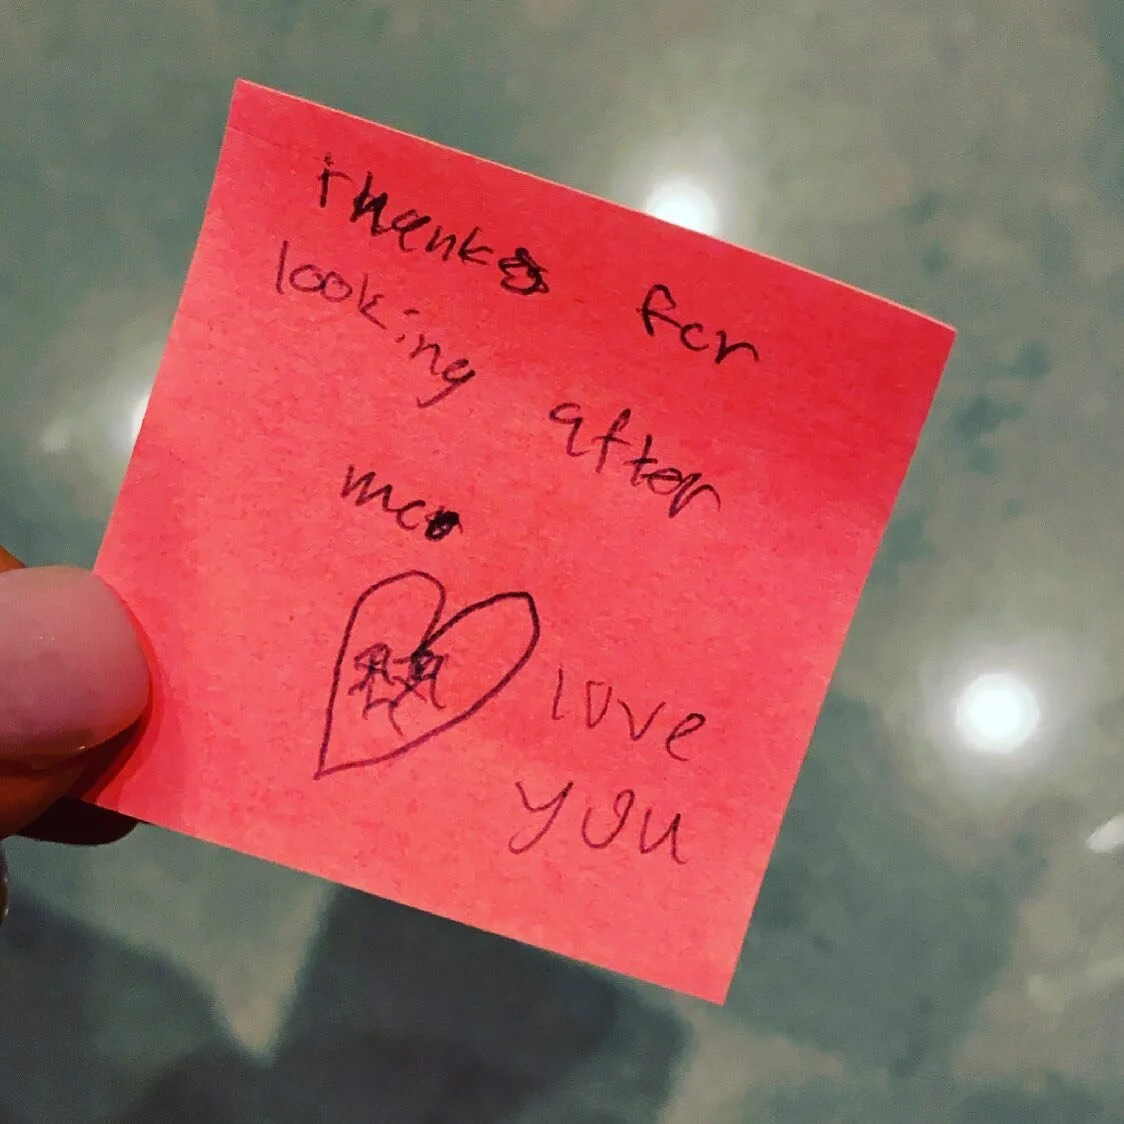 thanks for
looking after
me
love
you